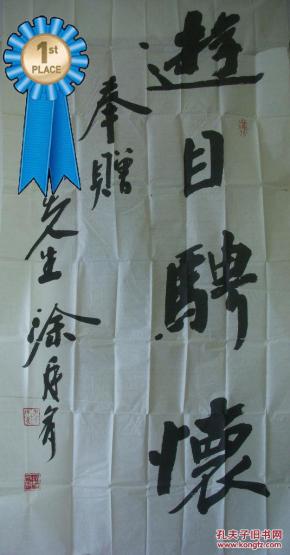 遊目騁懷
奉贈
先生 涂
1st
PLACE
孔夫子旧书网
www.kongfz.com